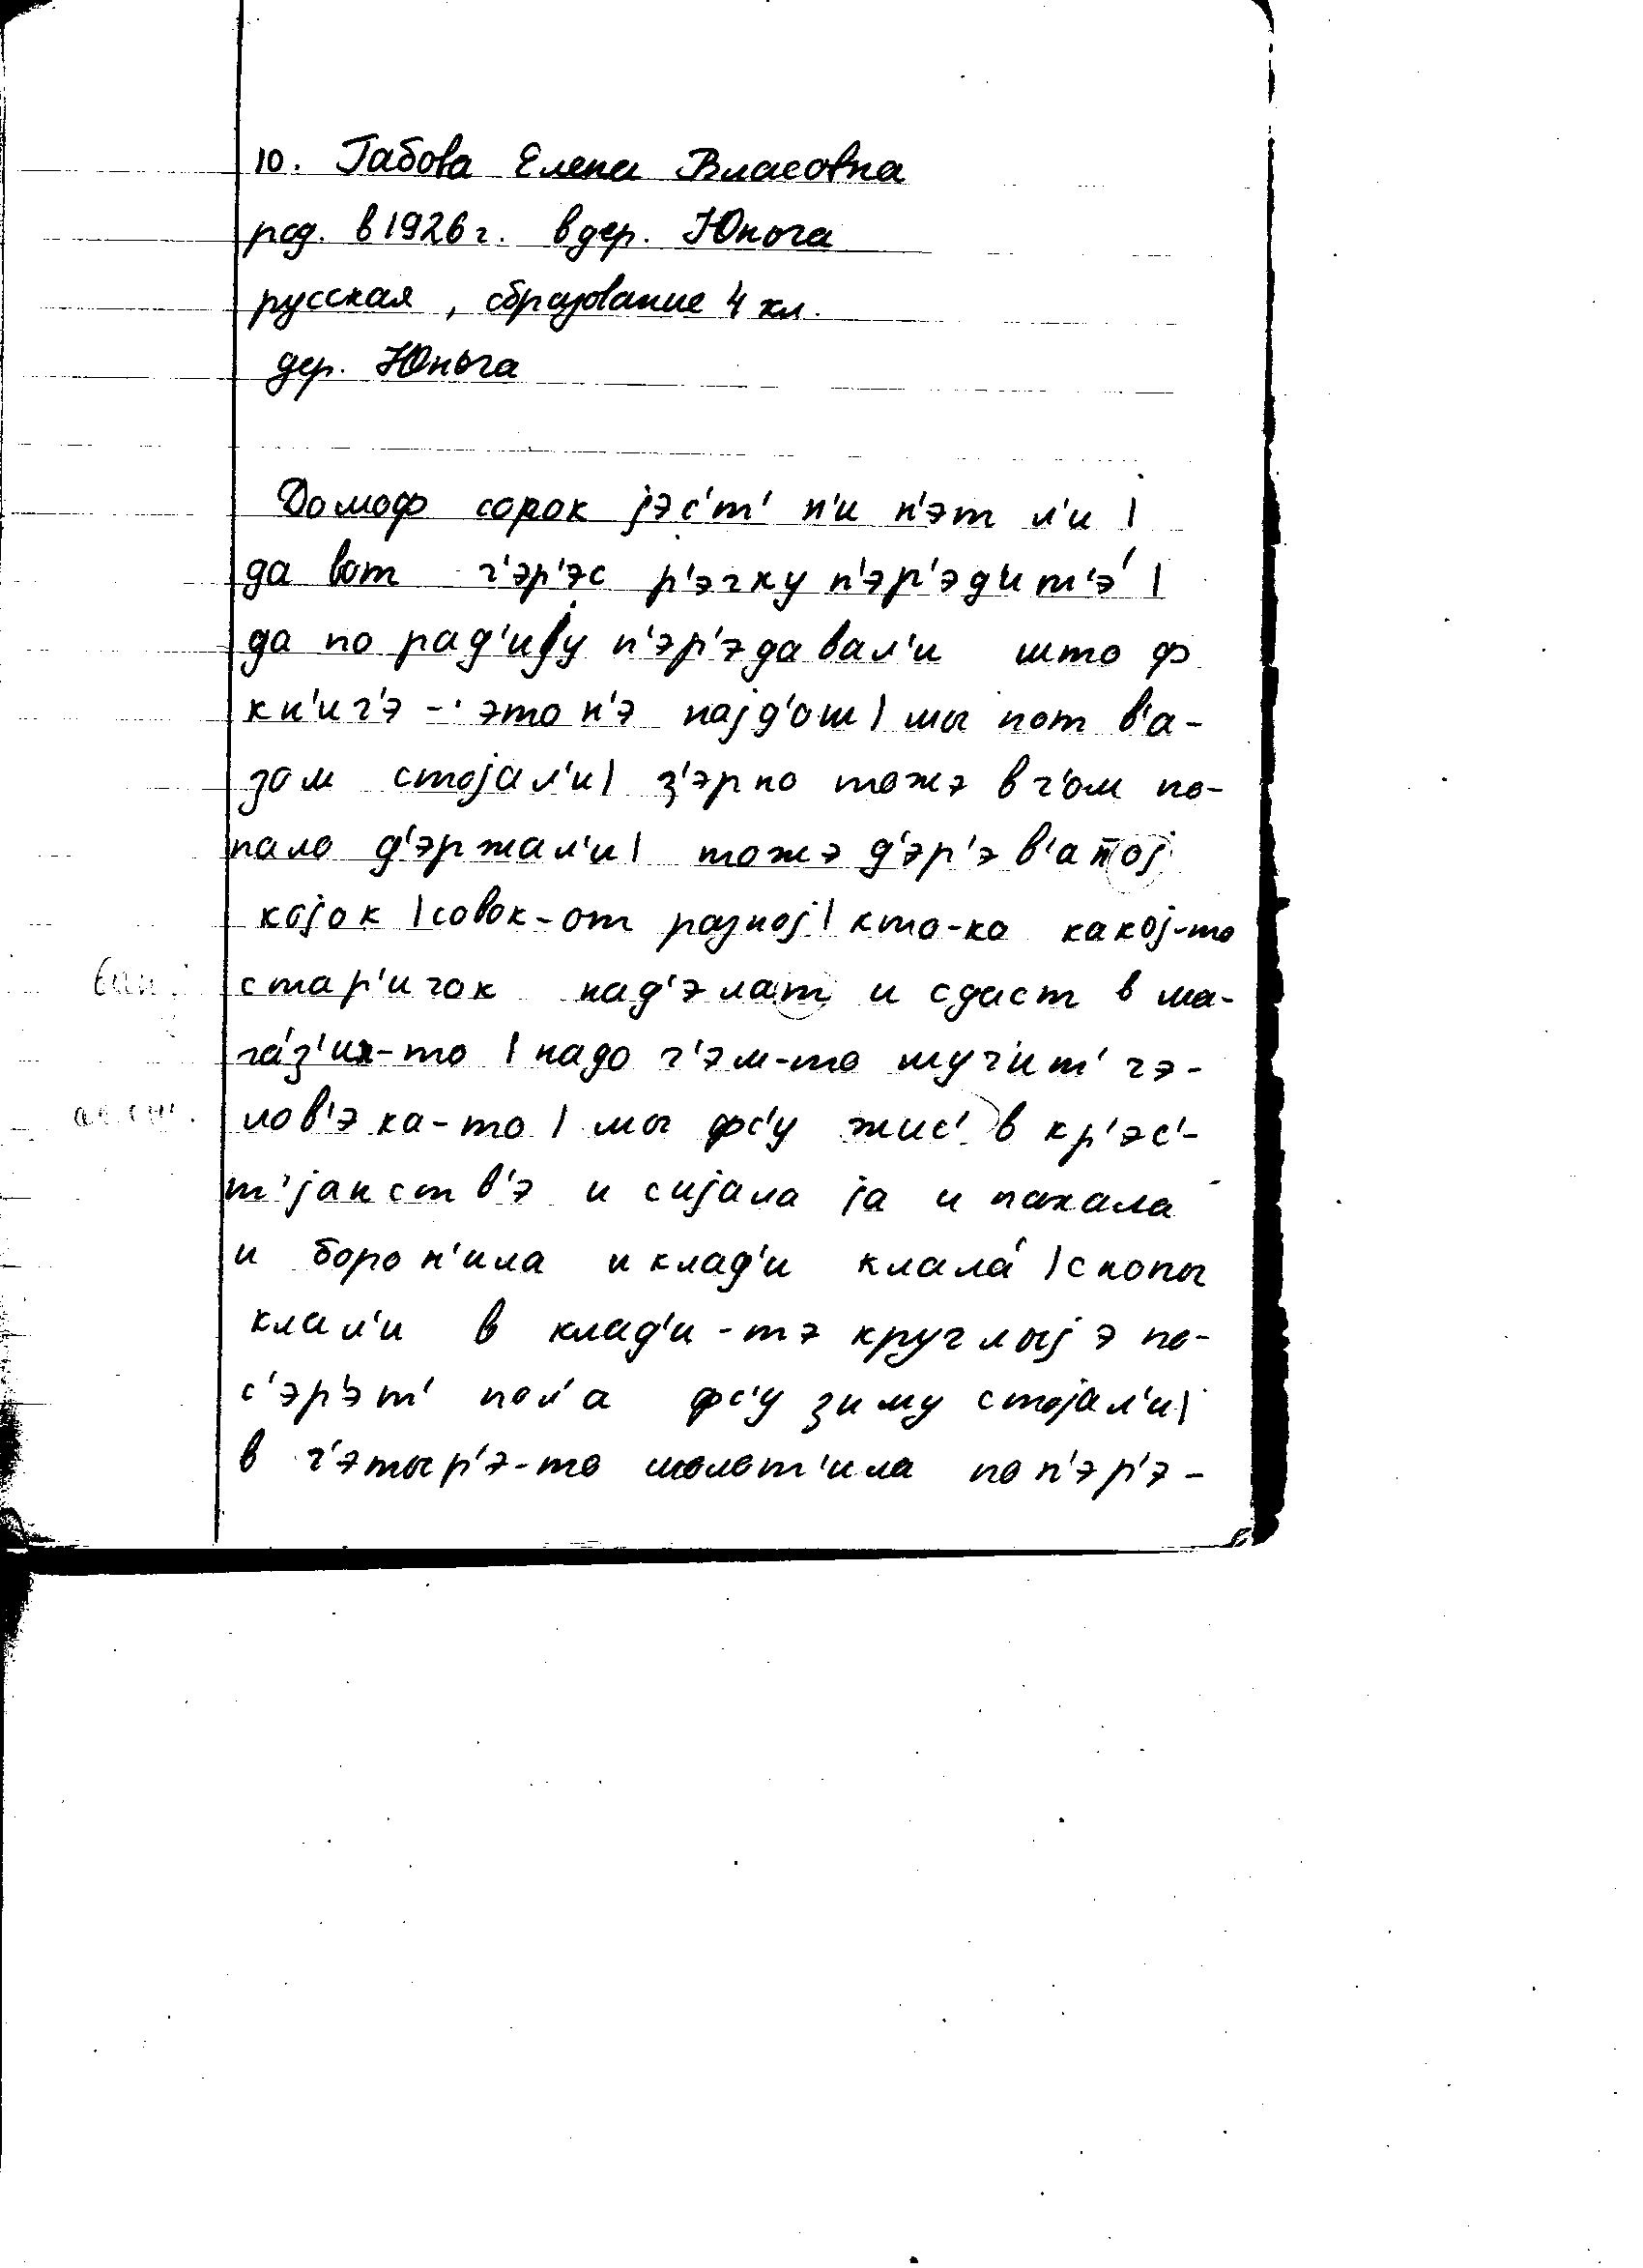 10. Габова Елена Власовна
род. в 1926 г. в дер. Юньга
русская, образование 4 кл.
дер. Юньга
Домоф сорок jэс'т' н'и н'эт л'и |
да вот ч'эр'эс р'эчку п'эр'эд'ит'э́ |
да по рад'иjу п'эр'эдавал'и што ф
кн'иг'э - это н'э наjд'ош | мы пот в'а-
зом стоjал'и | з'эрно тожэ в ч'ом по-
пало д'эржал'и | тожэ д'эр'эв'аноj
коjок | совок-от разноj | кто-ка какоj-то
стар'ичок над'элат и сдаст в ма-
га́з'ин-то | надо ч'эм-то муч'ит' чэ-
лов'эка-то | мы фс'у жис' в кр'эс'-
т'jанств'э и сиjала jа и пахала
и борон'ила и клад'и клала́ | снопы
клал'и в клад'и-тэ круглыjэ по-
с'эр'эт' пол'а фс'у зиму стоjал'и |
в ч'этыр'э-то молот'ила поп'эр'э-